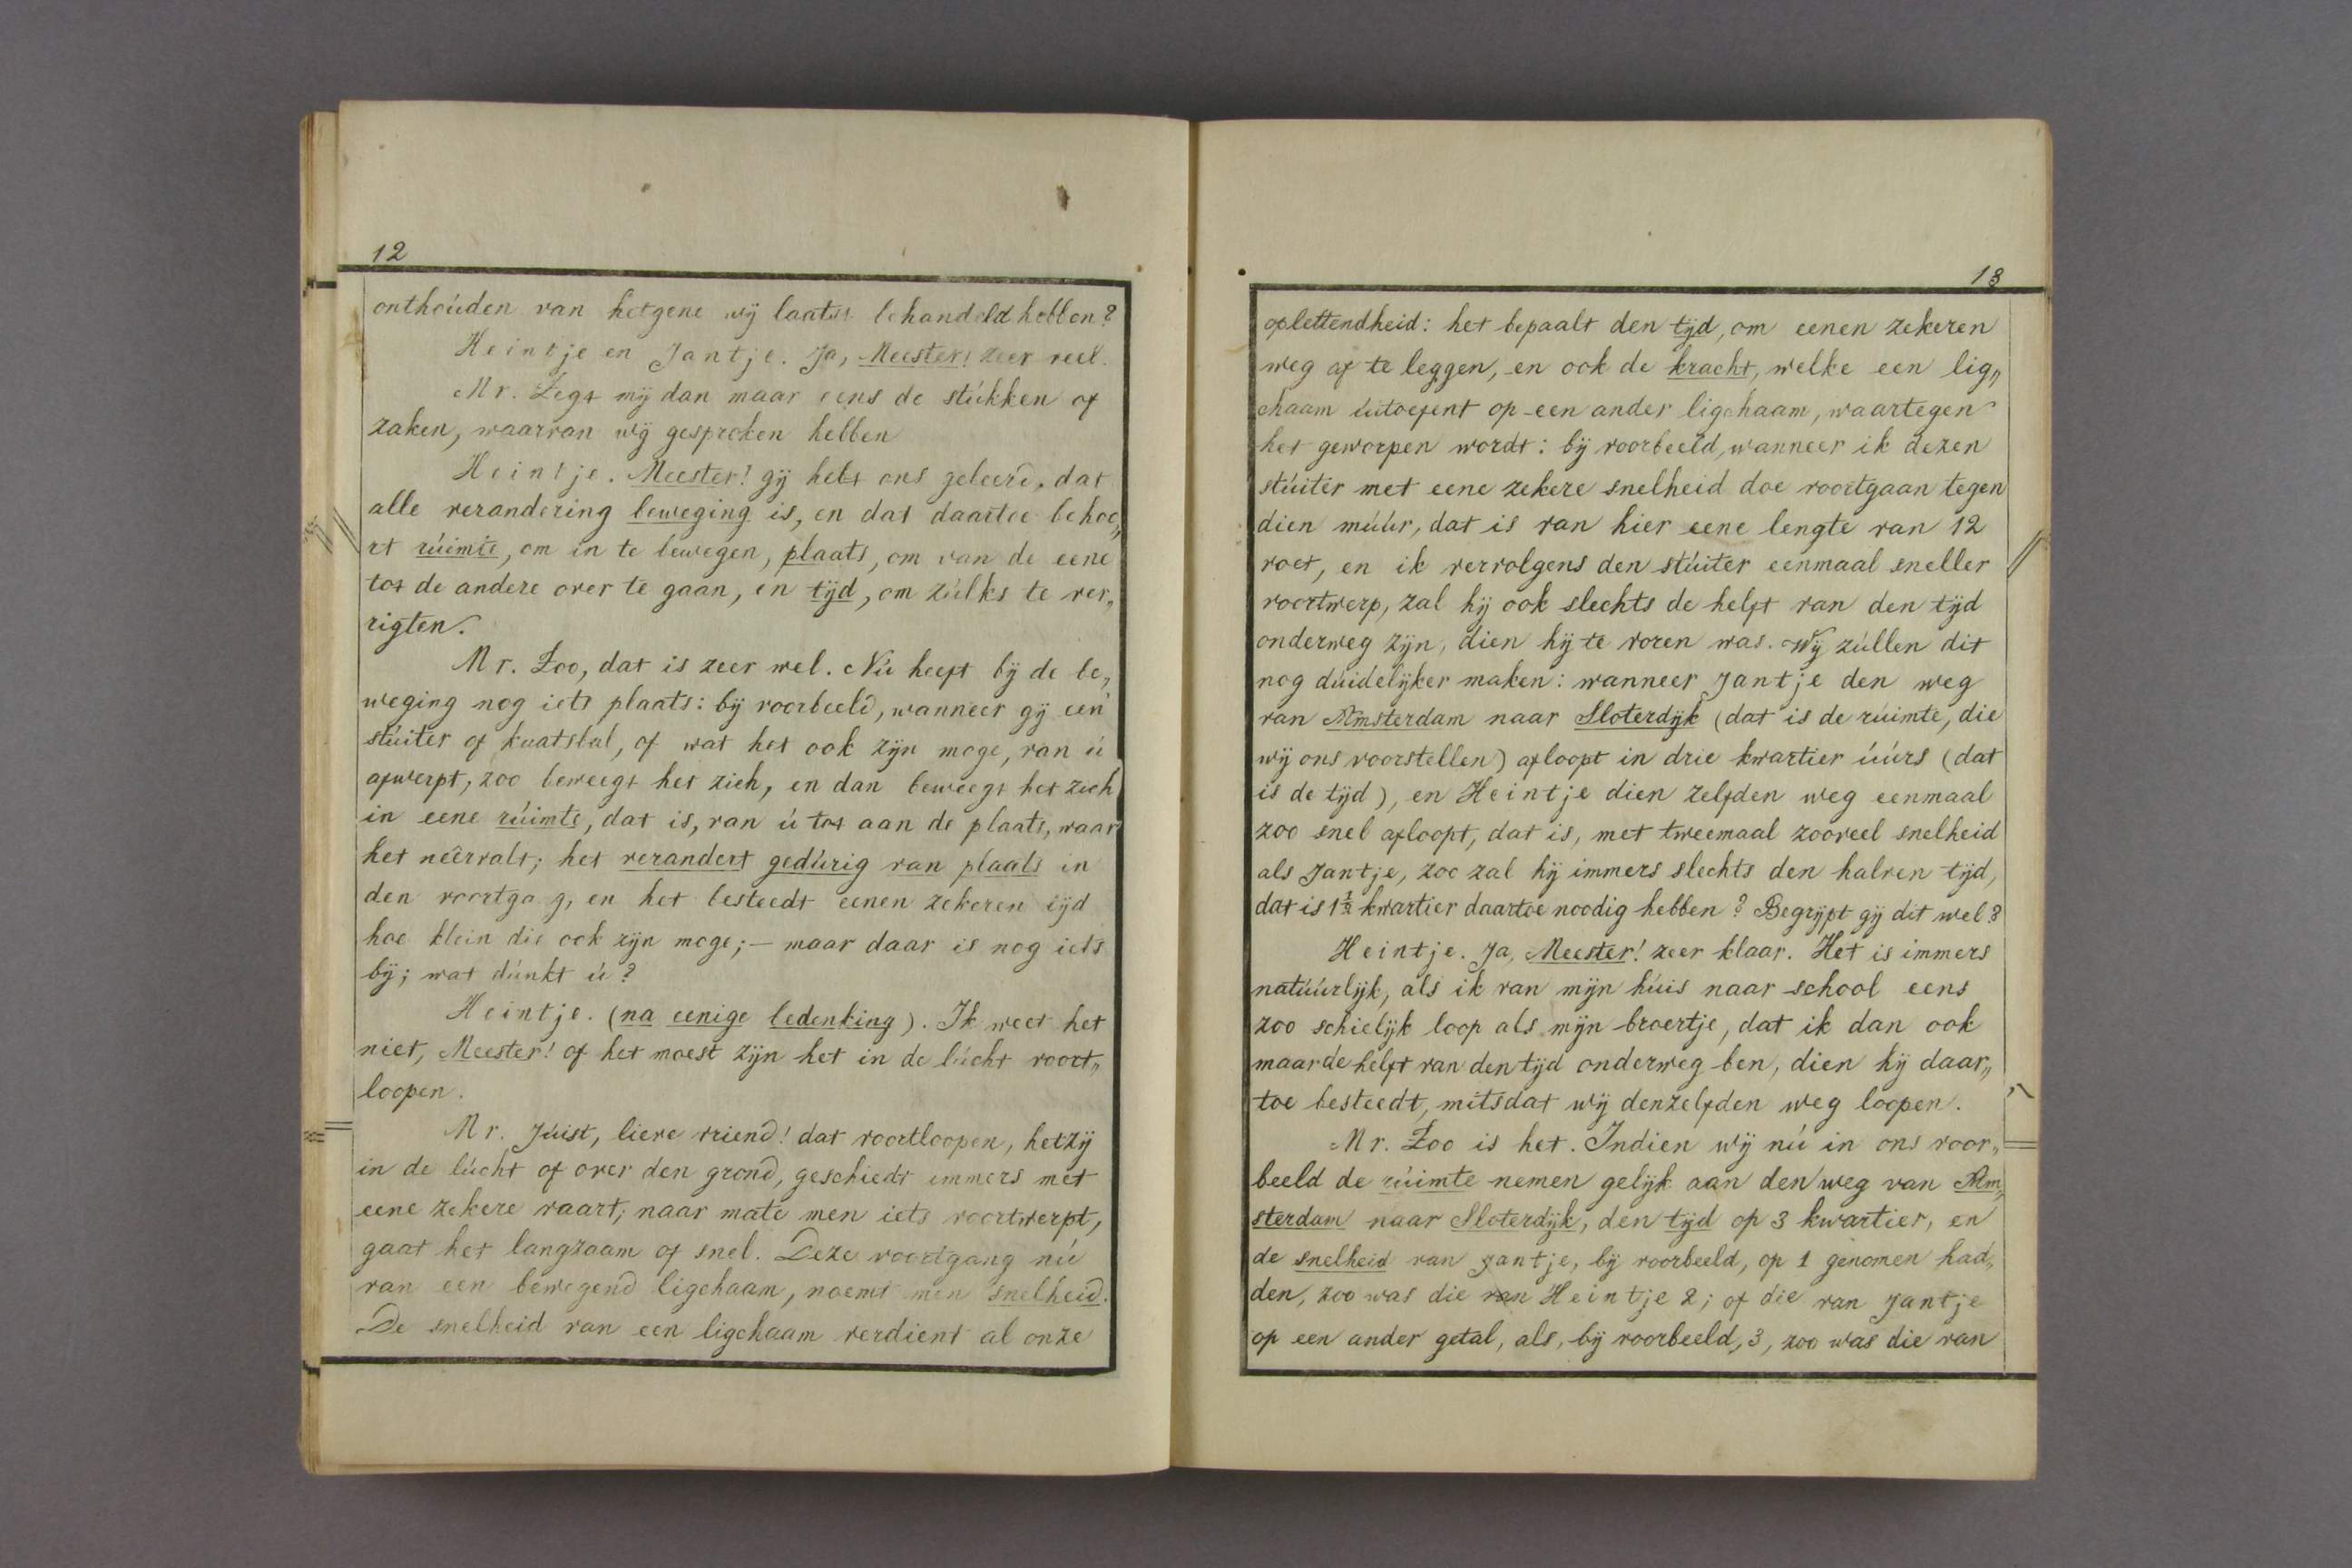 12
onthouden van hetgene wij laatst behandeld hebben?
Heintje en Jantje. Ja, Meester! zeer veel.
Mr. Zegt mij dan maar eens de stukken of
zaken, waarvan wij gesproken hebben
Heintje. Meester! gij hebt ons geleerd, dat
alle verandering beweging is, en dat daartoe behoo„
rt ruimte, om in te bewegen, plaats, om van de eene
tot de andere over te gaan, en tijd, om zulks te ver„
rigten.
Mr. Zoo, dat is zeer wel. Nu heeft bij de be„
weging nog iets plaats: bij voorbeeld, wanneer gij een
stuiter of kaatsbal, of wat het ook zijn moge, van u
afwerpt, zoo beweegt het zich, en dan beweegt het zich
in eene ruimte, dat is, van u tot aan de plaats, waar
het neêrvalt; het verandert gedurig van plaats in
den voortga g, en het besteedt eenen zekeren tijd
hoe klein die ook zijn moge; — maar daar is nog iets
bij; wat dunkt u?
Heintje. (na eenige bedenking). Ik weet het
niet, Meester! of het moest zijn het in de lucht voort„
loopen.
Mr. Juist, lieve vriend! dat voortloopen, hetzij
in de lucht of over den grond, geschiedt immers met
eene zekere vaart; naar mate men iets voortwerpt,
gaat het langzaam of snel. Deze voortgang nu
van een bewegend ligchaam, noemt men snelheid.
De snelheid van een ligchaam verdient al onze
13
oplettendheid: het bepaalt den tijd, om eenen zekeren
weg af te leggen, en ook de kracht, welke een lig„
chaam uitoefent op een ander ligchaam, waartegen
het geworpen wordt: bij voorbeeld, wanneer ik dezen
stuiter met eene zekere snelheid doe voortgaan tegen
dien muur, dat is van hier eene lengte van 12
voet, en ik vervolgens den stuiter eenmaal sneller
voortwerp, zal hij ook slechts de helft van den tijd
onderweg zijn, dien hij te voren was. Wij zullen dit
nog duidelijker maken: wanneer Jantje den weg
van Amsterdam naar Sloterdijk (dat is de ruimte, die
wij ons voorstellen) afloopt in drie kwartier uurs (dat
is de tijd), en Heintje dien zelfden weg eenmaal
zoo snel afloopt, dat is, met tweemaal zooveel snelheid
als Jantje, zoo zal hij immers slechts den halven tijd,
dat is 1½ kwartier daartoe noodig hebben? Begrijpt gij dit wel?
Heintje. Ja, Meester! zeer klaar. Het is immers
natuurlijk, als ik van mijn huis naar school eens
zoo schielijk loop als mijn broertje, dat ik dan ook
maar de helft van den tijd onderweg ben, dien hij daar„
toe besteedt, mitsdat wij denzelfden weg loopen.
Mr. Zoo is het. Indien wij nu in ons voor„
beeld de ruimte nemen gelijk aan den weg van Am„
sterdam naar Sloterdijk, den tijd op 3 kwartier, en
de snelheid van Jantje, bij voorbeeld, op 1 genomen had„
den, zoo was die van Heintje 2; of die van Jantje
op een ander getal, als, bij voorbeeld, 3, zoo was die van